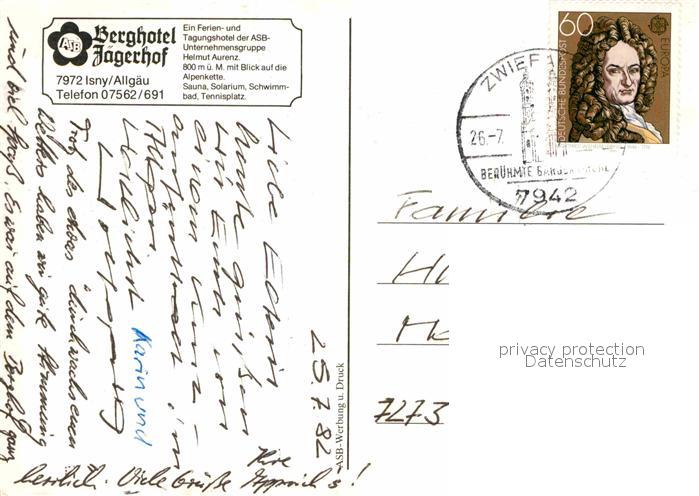 Berghotel
Jägerhof
ASB
7972 Isny/Allgäu
Telefon 07562/691
Ein Ferien- und
Tagungshotel der ASB-
Unternehmensgruppe
Helmut Aurenz.
800 m ü. M. mit Blick auf die
Alpenkette.
Sauna, Solarium, Schwimm-
bad, Tennisplatz.
25.7.82
Liebe Eltern
heute grüßen
wir Euch von
einem
im
Allgäu
Herzlichst
Karin und
Trotz des etwas durchwachsenen
Wetters haben wir gute Stimmung
und viel Spaß. Es war auf dem Berghof ganz
herrlich. Viele Grüße Ihre
ASB-Werbung u. Druck
60
DEUTSCHE BUNDESPOST
EUROPA
ZWIEFA
26.-7.
BERÜHMTE BAROCKKIRCHE
7942
Familie
H
M
7273
privacy protection
Datenschutz